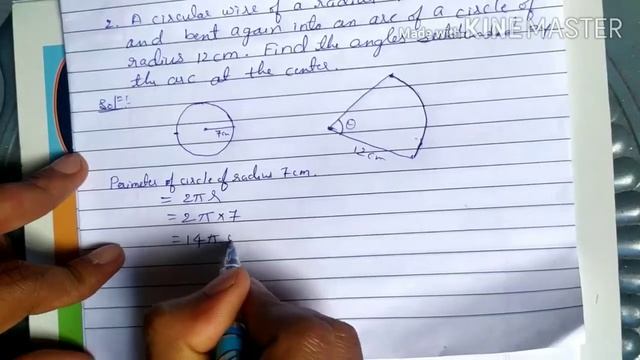 2. A circular wire of a radius
and bent again into an arc of a circle of
radius 12cm. Find the angles by
the arc at the center.
Made with KINEMASTER
Solⁿ:
7cm
θ
12cm
Perimeter of circle of radius 7cm.
= 2πr
= 2π×7
= 14π